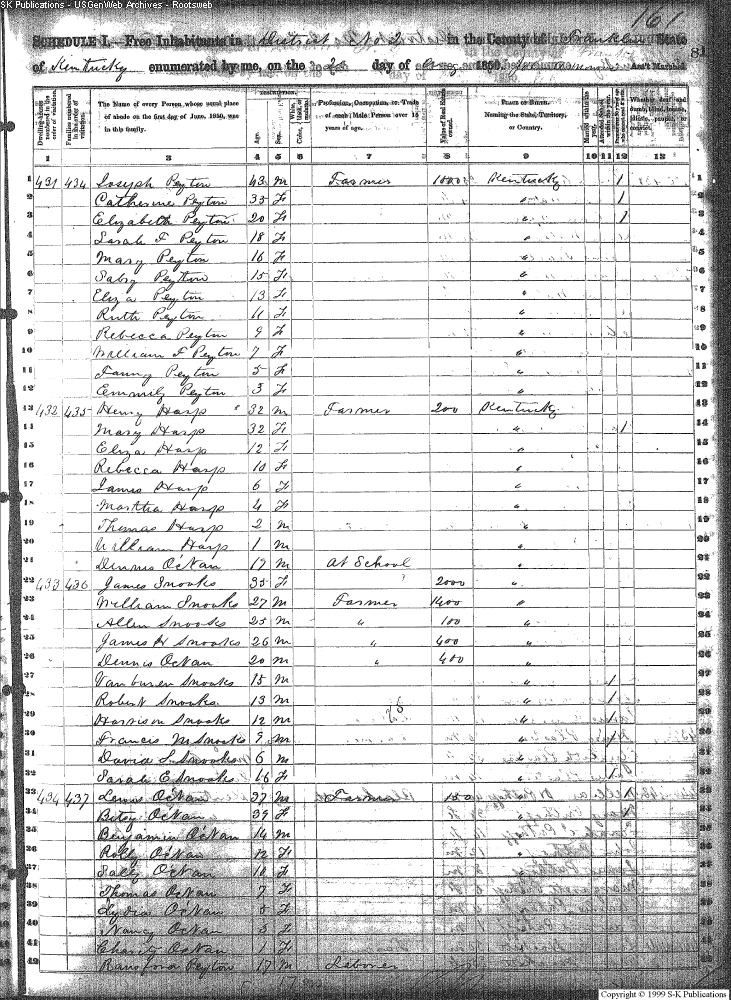 SK Publications - USGenWeb Archives - Rootsweb
161
SCHEDULE I.—Free Inhabitants in District No 2 in the County of Franklin State
81
of Kentucky enumerated by me, on the 2d day of Aug 1850. Ass't Marshal
DESCRIPTION.
Dwelling-houses numbered in the order of visitation. Families numbered in the order of visitation. The Name of every Person whose usual place of abode on the first day of June, 1850, was in this family. Age. Sex. White, black, or mulatto. Profession, Occupation, or Trade of each Male Person over 15 years of age. Value of Real Estate owned. PLACE OF BIRTH. Naming the State, Territory, or Country. Married within the year. Attended School within the year. Whether deaf and dumb, blind, insane, idiotic, pauper, or convict.
1 2 3 4 5 6 7 8 9 10 11 12 13
1 431 434 Joseph Peyton 43 M Farmer 1000 Kentucky 1 1
2 Catherine Peyton 35 F " 1 2
3 Elizabeth Peyton 20 F " 1 3
4 Sarah F Peyton 18 F " 4
5 Mary Peyton 16 F " 5
6 Saby Peyton 15 F " 6
7 Eliza Peyton 13 F " 7
8 Ruth Peyton 11 F " 8
9 Rebecca Peyton 9 F " 9
10 William F Peyton 7 F " 10
11 Fanny Peyton 5 F " 11
12 Emmily Peyton 3 F " 12
13 432 435 Henry Harp 32 M Farmer 200 Kentucky 13
14 Mary Harp 32 F " 1 14
15 Eliza Harp 12 F " 15
16 Rebecca Harp 10 F " 16
17 James Harp 6 F " 17
18 Martha Harp 4 F " 18
19 Thomas Harp 2 M " 19
20 William Harp 1 M " 20
21 Dennis OcNan 17 M At School " 21
22 433 436 James Snooks 35 F 2000 " 22
23 William Snooks 27 M Farmer 1400 " 23
24 Allen Snooks 25 M " 100 " 24
25 James H Snooks 26 M " 400 " 25
26 Dennis OcNan 20 M " 400 " 26
27 Vanburen Snooks 15 M " 1 27
28 Robert Snooks 13 M " 1 28
29 Harrison Snooks 12 M " 1 29
30 Francis M Snooks 9 M " 1 30
31 David S Snooks 6 M " 31
32 Sarah E Snooks 16 F " 1 32
33 434 437 Lewis OcNan 37 M Farmer 150 " 33
34 Betsy OcNan 39 F " 34
35 Benjamin OcNan 14 M " 35
36 Polly OcNan 12 F " 36
37 Sally OcNan 10 F " 37
38 Thomas OcNan 7 F " 38
39 Lydia OcNan 5 F " 39
40 Nancy OcNan 3 F " 40
41 Charity OcNan 1 F " 41
42 Peyton 17 M Laborer " 42
Copyright © 1999 S-K Publications